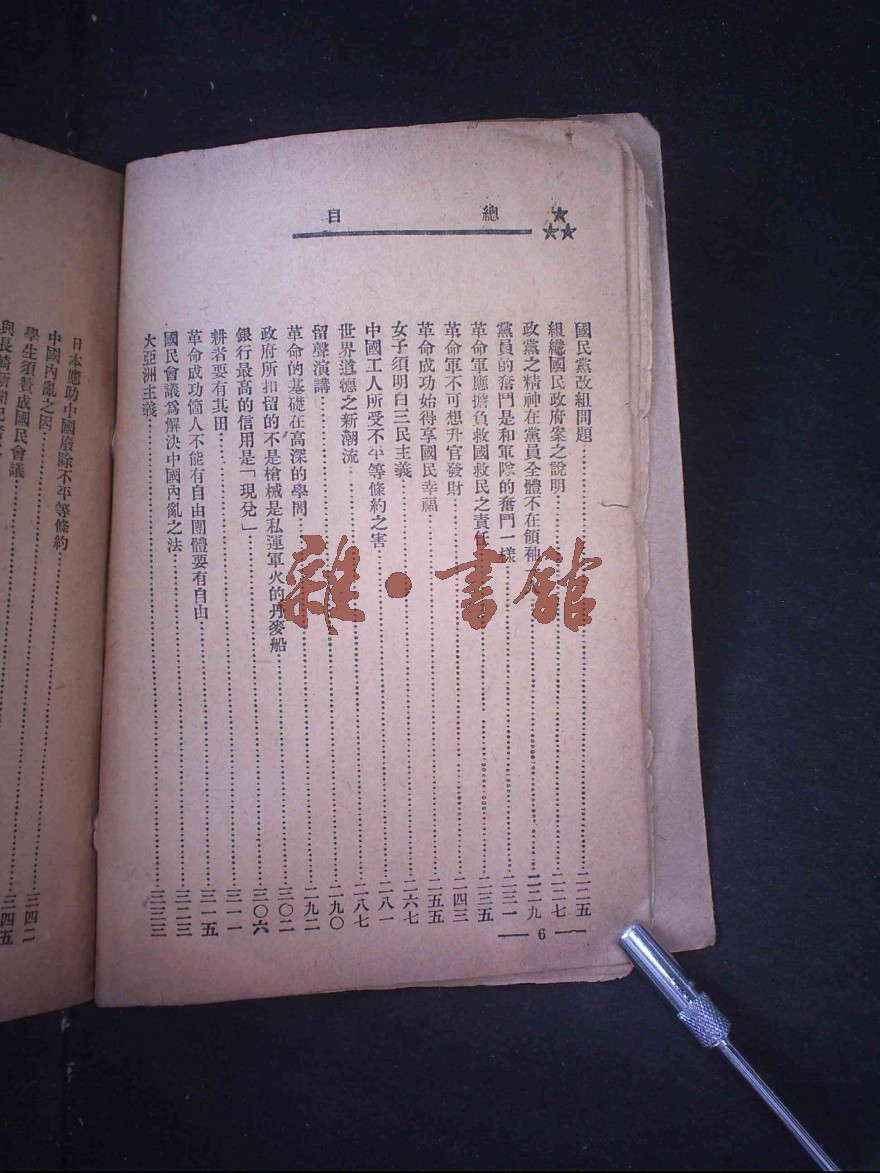 總目
國民黨改組問題……二二五
組織國民政府案之說明……二二七
政黨之精神在黨員全體不在領袖一人……二二九
黨員的奮鬥是和軍隊的奮鬥一樣……二三一
革命軍應擔負救國救民之責任……二三五
革命軍不可想升官發財……二四三
革命成功始得享國民幸福……二五五
女子須明白三民主義……二六七
中國工人所受不平等條約之害……二八一
世界道德之新潮流……二八七
留聲演講……二九〇
革命的基礎在高深的學問……二九二
政府所扣留的不是槍械是私運軍火的丹麥船……三〇二
銀行最高的信用是「現兌」……三〇六
耕者要有其田……三一一
革命成功箇人不能有自由團體要有自由……三一五
國民會議爲解決中國內亂之法……三二三
大亞洲主義……三三三
— 6 —
日本應助中國廢除不平等條約
中國內亂之因……三四二
學生須贊成國民會議……三四五
與長崎新聞記者
雜·書館